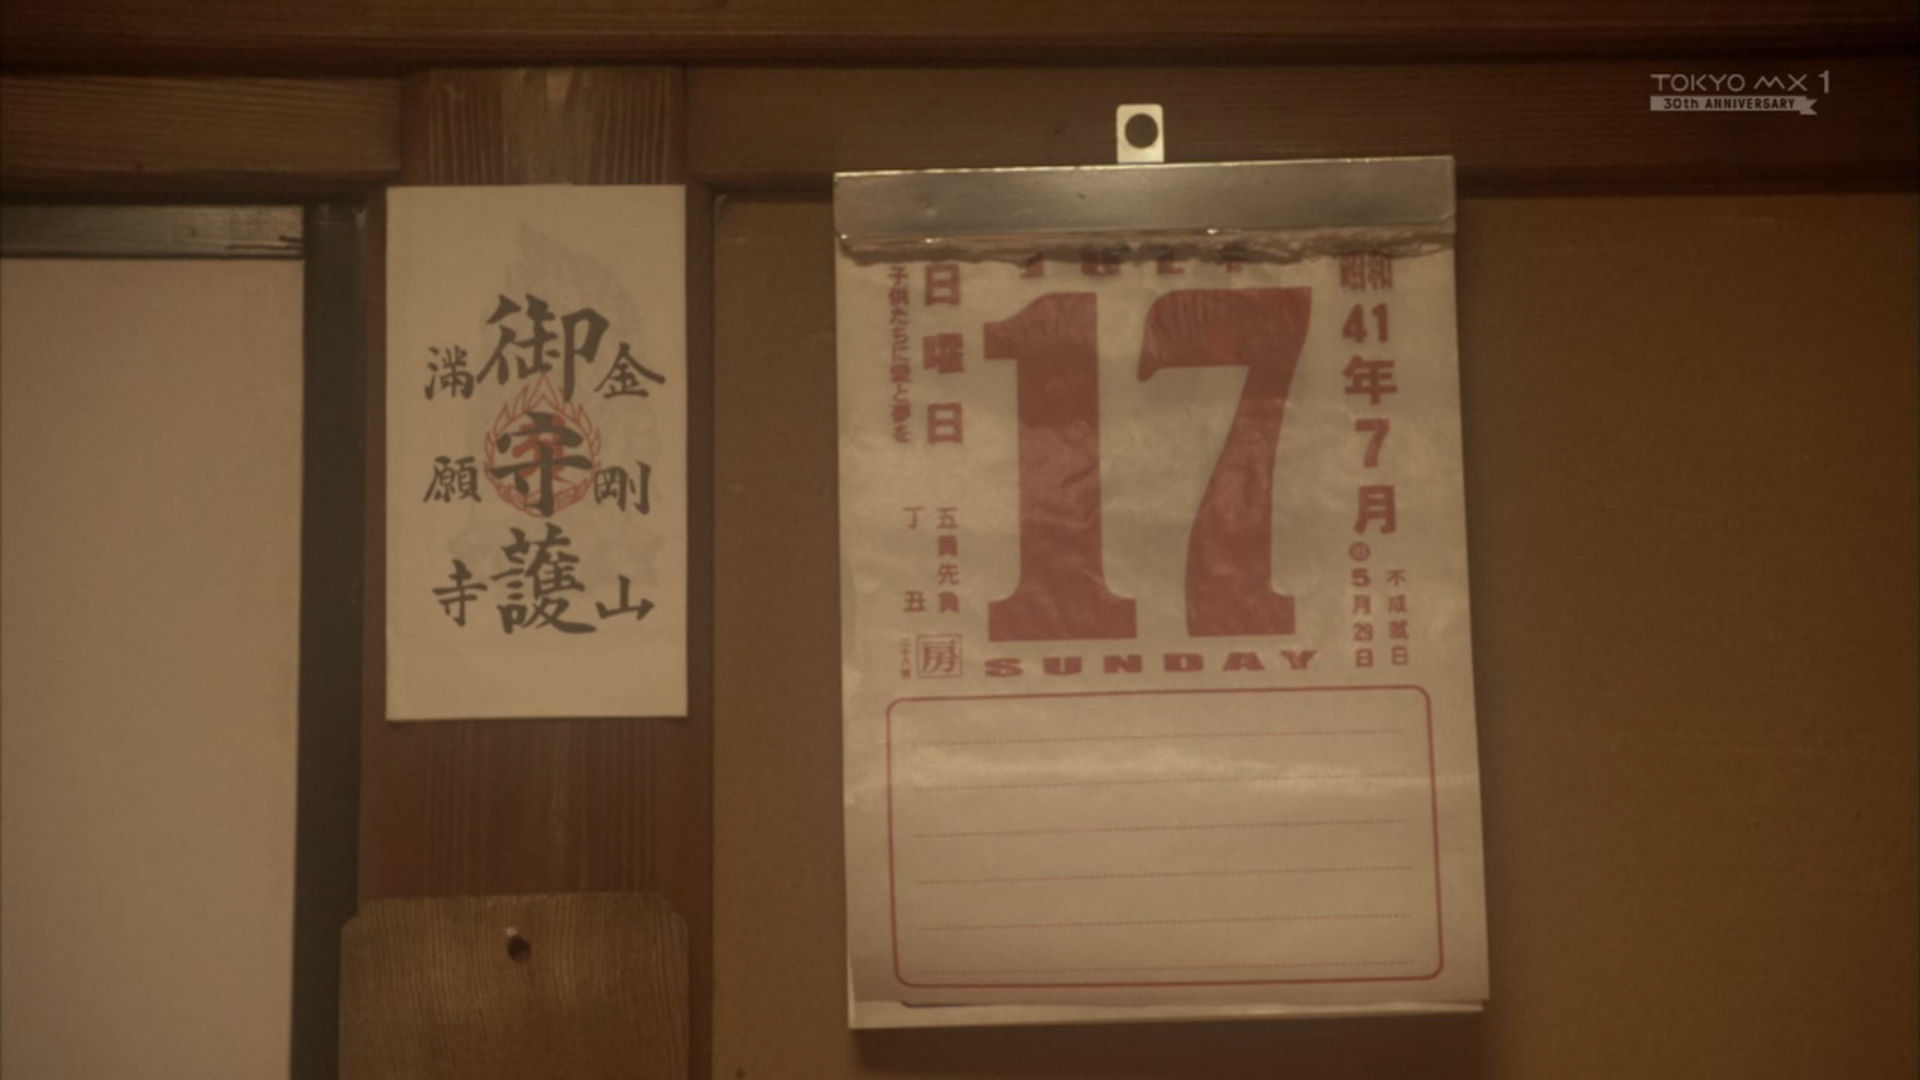 TOKYO MX 1
30th ANNIVERSARY
金剛山
御守護
満願寺
JULY
17
SUNDAY
昭和41年7月
旧5月29日
不成就日
日曜日
子供たちに愛と夢を
五黄先負
丁丑
二十八宿
房